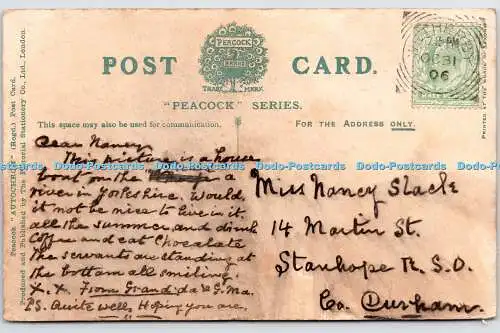 POST CARD.
PEACOCK
BRAND
TRADE MARK.
"PEACOCK" SERIES.
This space may also be used for communication.
FOR THE ADDRESS ONLY.
Peacock "AUTOCHROM" (Regd.) Post Card.
Produced and Published by The Pictorial Stationery Co., Ltd., London.
PRINTED AT THE WORKS IN
PM
OC 31
06
Dear Nancy
This is a
boat on the
river in Yorkshire. Would
it not be nice to live in it
all the summer, and drink
Coffee and eat Chocolate
the servants are standing at
the bottom all smiling.
X. X. From Grand-da & G. Ma.
PS. Quite well, Hoping you are.
Miss Nancy Slack
14 Martin St.
Stanhope R.S.O.
Co. Durham.
Dodo-Postcards Dodo-Postcards Dodo-Postcards Dodo-Postcards Dodo-Postcards